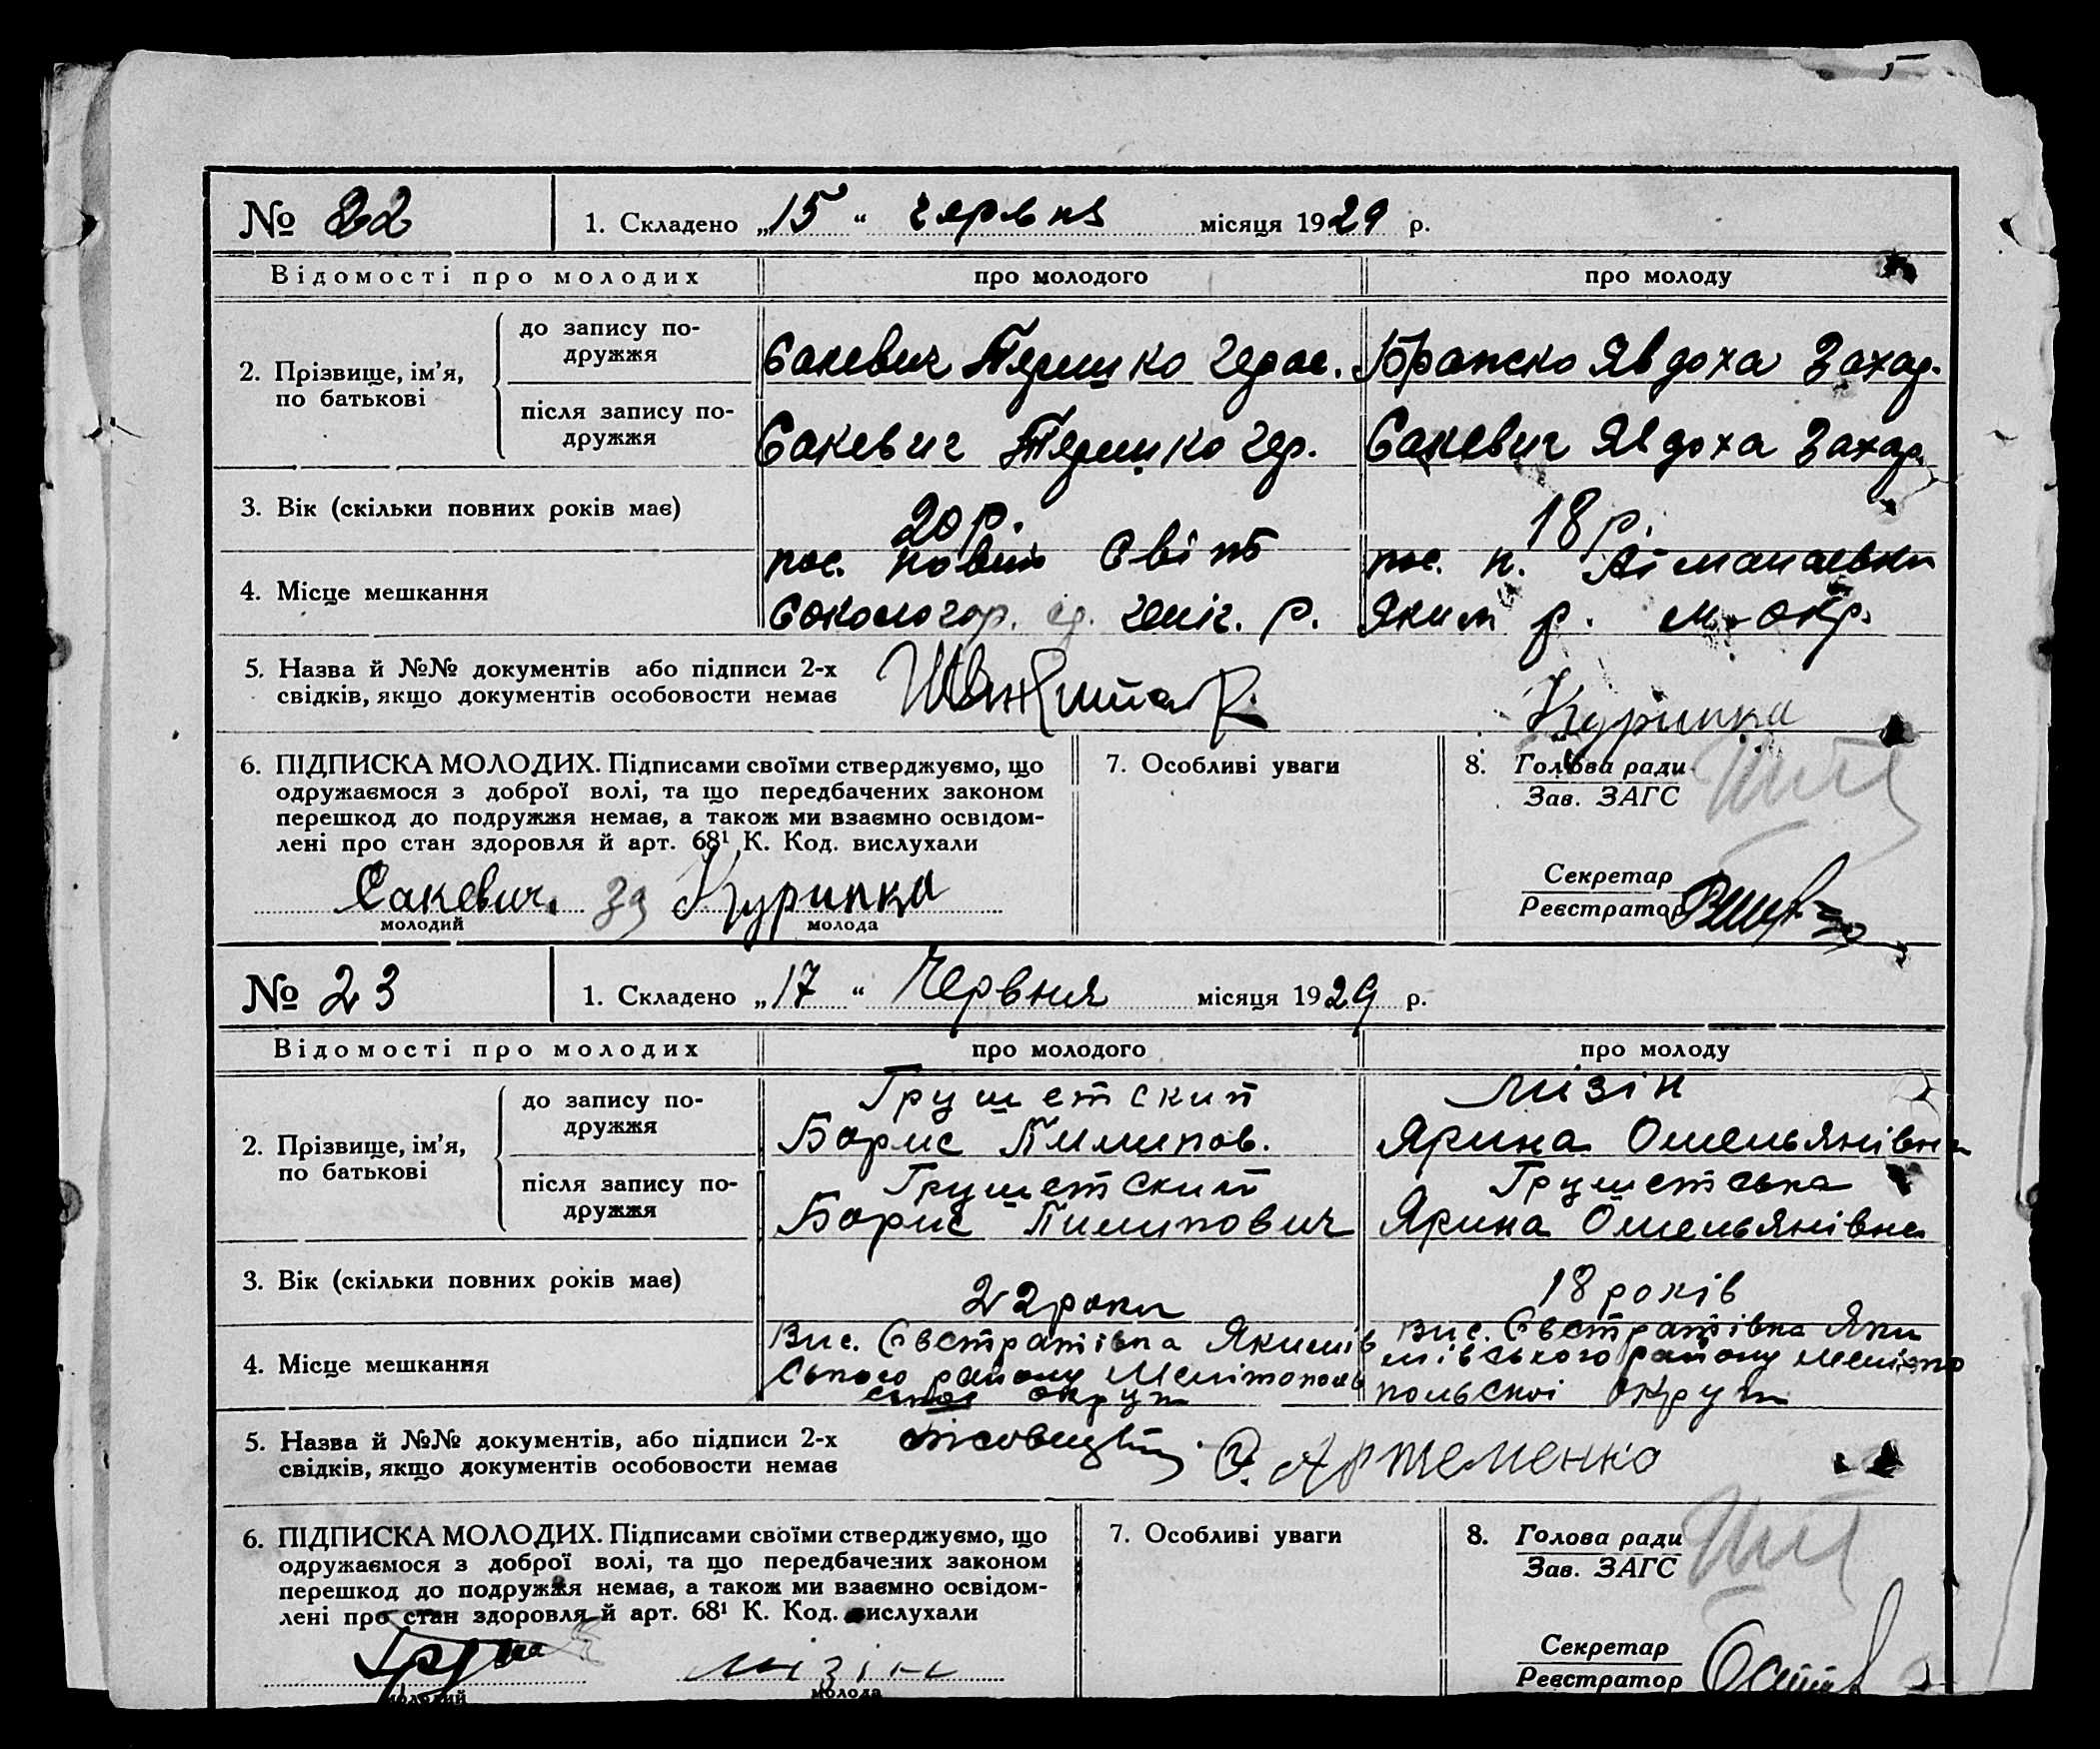 № 22
1. Складено „15“ червня місяця 1929 р.
Відомості про молодих про молодого про молоду
2. Прізвище, ім'я, по батькові
до запису подружжя
Сакевич Терешко Герас. Явдоха Захар.
після запису подружжя
Сакевич Терешко Гер. Сакевич Явдоха Захар.
3. Вік (скільки повних років має) 20 р. 18 р.
4. Місце мешкання
пос. Новий Світ пос. н.
Сокологор. р. Яким р. М. окр.
5. Назва й №№ документів або підписи 2-х
свідків, якщо документів особовости немає
Курипка
6. ПІДПИСКА МОЛОДИХ. Підписами своїми стверджуємо, що
одружаємося з доброї волі, та що передбачених законом
перешкод до подружжя немає, а також ми взаємно освідом-
лені про стан здоровля й арт. 68¹ К. Код. вислухали
Сакевич за Курипка
молодий молода
7. Особливі уваги
8. Голова ради
Зав. ЗАГС
Секретар
Реєстратор
№ 23
1. Складено „17“ Червня місяця 1929 р.
Відомості про молодих про молодого про молоду
2. Прізвище, ім'я, по батькові
до запису по-
дружжя
Грушетский Мізін
Борис Пилипов. Ярина Омельянівна
після запису по-
дружжя
Грушетский Грушетська
Борис Пилипович Ярина Омельянівна
3. Вік (скільки повних років має) 22 роки 18 років
4. Місце мешкання
Вис. Євстратівка Якимів Вис. Євстратівка Яки
ського району Мелітополь мівського району Меліто
округи польскої округи
5. Назва й №№ документів, або підписи 2-х
свідків, якщо документів особовости немає
Артеменко
6. ПІДПИСКА МОЛОДИХ. Підписами своїми стверджуємо, що
одружаємося з доброї волі, та що передбачених законом
перешкод до подружжя немає, а також ми взаємно освідом-
лені про стан здоровля й арт. 68¹ К. Код. вислухали
мізін
молодий молода
7. Особливі уваги
8. Голова ради
Зав. ЗАГС
Секретар
Реєстратор